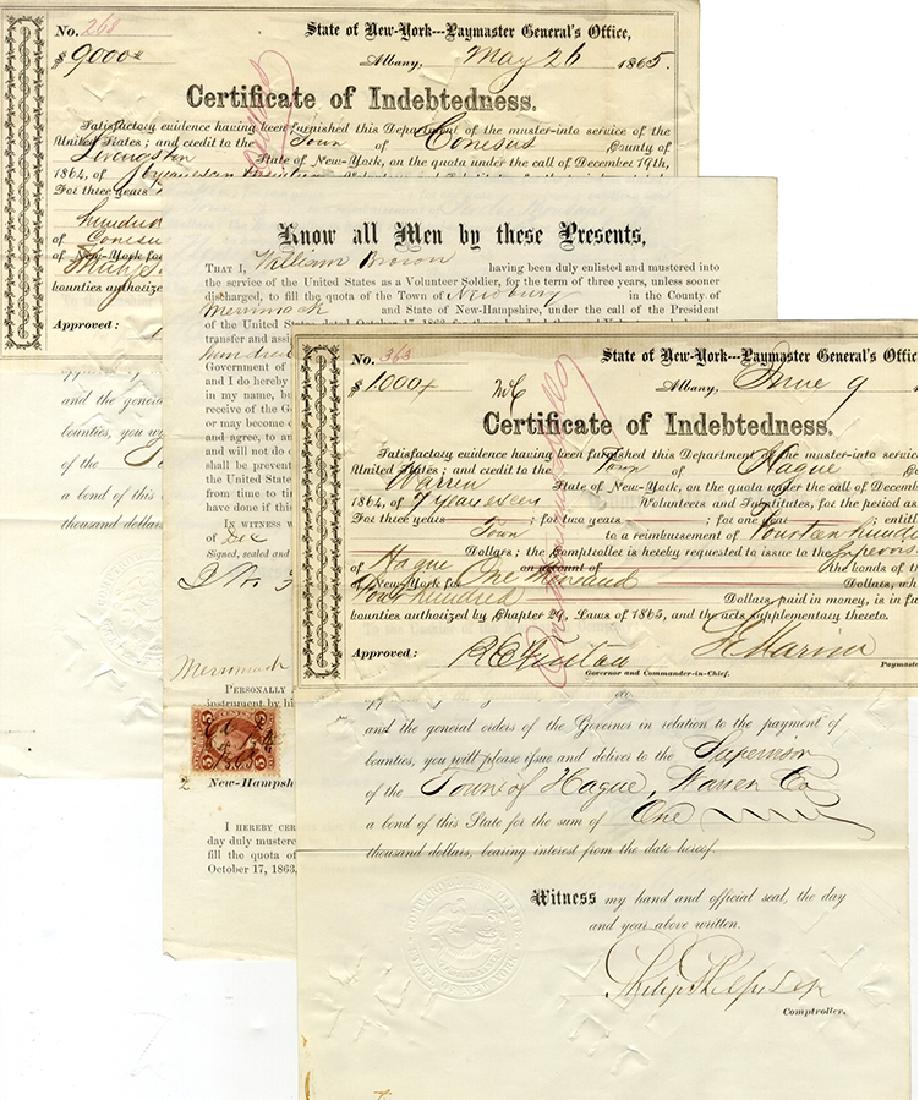 No. 268
State of New-York---Paymaster General's Office,
$9000
Albany, May 26 1865.
Certificate of Indebtedness.
Satisfactory evidence having been furnished this Department of the muster-into service of the
United States; and credit to the Town of Conesus County of
Livingston State of New-York, on the quota under the call of December 19th,
1864, of
For three years
hundred
of Conesus
of New-York for
bounties authorized
Approved:
and the general
bounties, you
of the
a bond of this
thousand dollars
Know all Men by these Presents,
THAT I, William Brown having been duly enlisted and mustered into
the service of the United States as a Volunteer Soldier, for the term of three years, unless sooner
discharged, to fill the quota of the Town of Newbury in the County of
Merrimack and State of New-Hampshire, under the call of the President
of the United States, dated October 17, 1863
transfer and
hundred
Government of
and I do hereby
in my name, bu
receive of the Go
or may become d
and agree, to an
and will not do o
shall be preven
the United States
from time to tim
have done if this
IN WITNESS W
of Dec
Signed, sealed and
Merrimack
PERSONALLY
instrument by hi
2
New-Hampsh
I HEREBY CER
day duly mustere
fill the quota of
October 17, 1863,
No. 363
State of New-York---Paymaster General's Office
$1000
Albany, June 9
Certificate of Indebtedness.
Satisfactory evidence having been furnished this Department of the muster-into service
United States; and credit to the Town of Hague
Warren State of New-York, on the quota under the call of Decem
1864, of 7 years Volunteers and Substitutes, for the period as
For three years ; for two years ; for one year ; entitl
Town to a reimbursement of Fourteen hund
Dollars; the Comptroller is hereby requested to issue to the Supervis
of Hague on account of the bonds of th
of New York for One thousand Dollars, wh
Four hundred Dollars, paid in money, is in fu
bounties authorized by Chapter 29, Laws of 1865, and the acts supplementary thereto.
Approved: R E Fenton
Governor and Commander-in-Chief.
Paymaste
and the general orders of the Governor in relation to the payment of
bounties, you will please issue and deliver to the Supervisor
of the Town of Hague, Warren Co
a bond of this State for the sum of One
thousand dollars, bearing interest from the date hereof.
Witness my hand and official seal, the day
and year above written.
Comptroller.